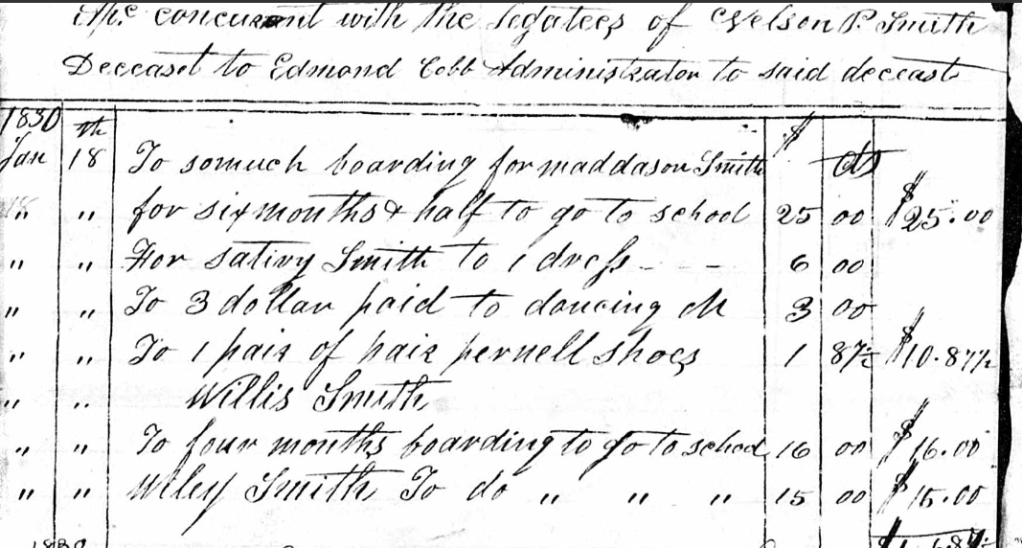 a/c concurent with the legatees of Nelson P. Smith
Deceast to Edmond Cobb Administrator to said deceast
1830 th $ cts
Jan 18 To somuch boarding for maddason Smith
" " for six months & half to go to school 25 00 $25.00
" " For sativy Smith to 1 dress - - 6 00
" " To 3 dollar paid to dancing M 3 00
" " To 1 pair of pair pernell shoes 1 87½ $10.87½
" " Willis Smith
" " To four months boarding to go to school 16 00 $16.00
" " Wiley Smith To do " " " 15 00 $15.00
1830